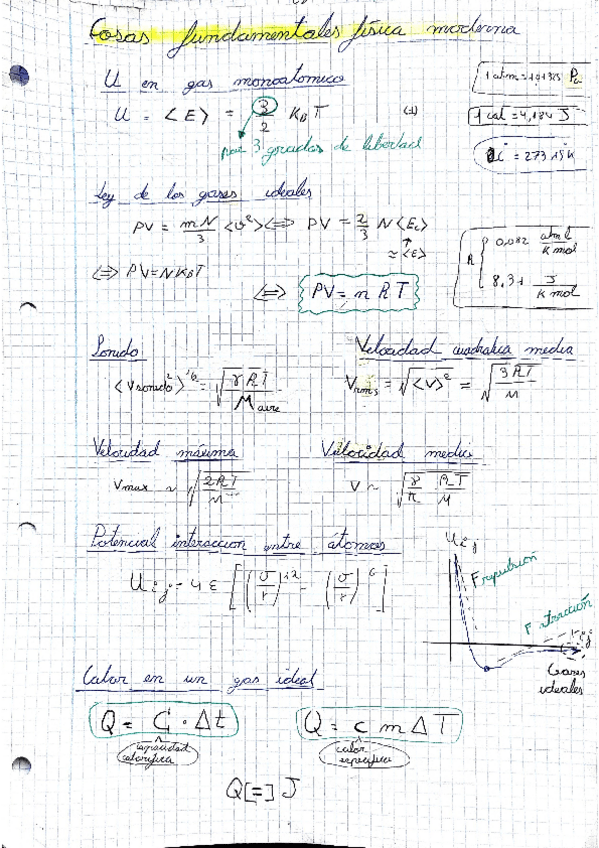 Cosas fundamentales física moderna
U en gas monoatomico
U = <E> = 3/2 K_B T (J)
por 3 grados de libertad
1 atm = 101325 Pa
1 cal = 4,184 J
= 273,15 K
Ley de los gases ideales
PV = mN/3 <v²> <=> PV = 2/3 N <E_c>
≈ <E>
<=> PV = N K_B T
<=> PV = n R T
R { 0,082 atm l / K mol
8,31 J / K mol
Sonido
<v sonido²>^1/2 = √(γRT / M aire)
Velocidad cuadratica media
V_rms = √<v>² = √(3RT / M)
Velocidad máxima
V max ~ √(2RT / M)
Velocidad media
V ~ √(8/π RT/M)
Potencial interaccion entre átomos
U_ij = 4 ε [(σ/r)^12 - (σ/r)^6]
U_ij
F repulsion
F atracción
r_ij
Gases
ideales
Calor en un gas ideal
Q = C · Δt
capacidad
calorifica
Q = c m Δ T
calor
especifico
Q [=] J